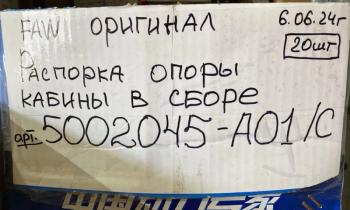 FAW ОРИГИНАЛ
6.06.24г
20шт
РАСПОРКА ОПОРЫ
КАБИНЫ В СБОРЕ
арт. 5002045-A01/C